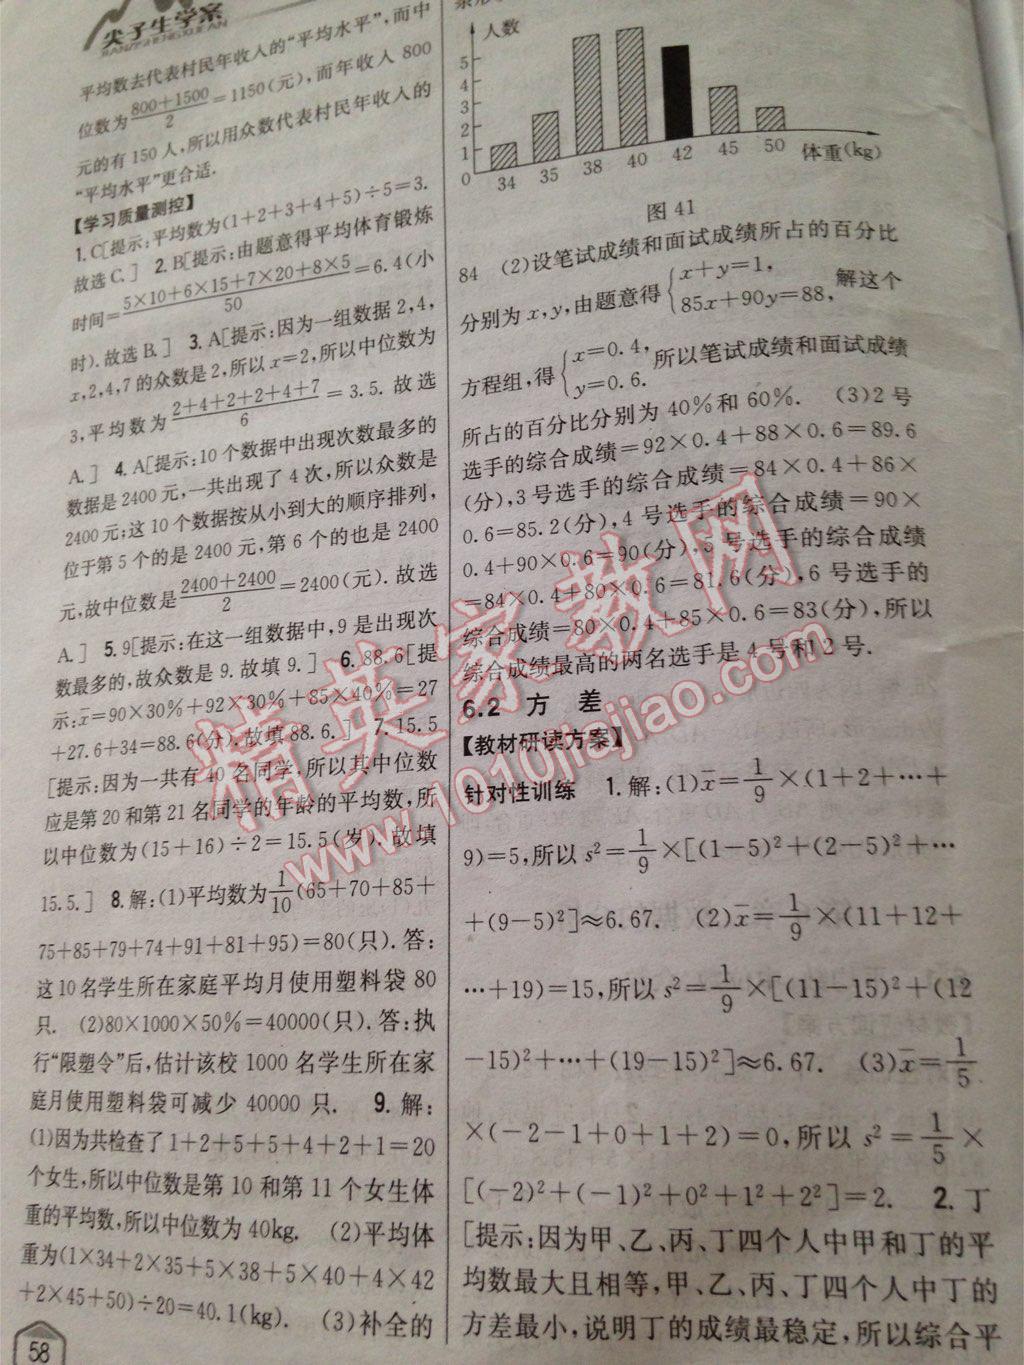 尖子生学案
JIANZISHENGXUEAN
平均数去代表村民年收入的“平均水平”,而中
位数为(800+1500)/2=1150(元),而年收入 800
元的有 150 人,所以用众数代表村民年收入的
“平均水平”更合适.
【学习质量测控】
1.C[提示:平均数为(1+2+3+4+5)÷5=3.
故选C.] 2.B[提示:由题意得平均体育锻炼
时间=(5×10+6×15+7×20+8×5)/50=6.4(小
时).故选B.] 3.A[提示:因为一组数据 2,4,
x,2,4,7 的众数是 2,所以 x=2,所以中位数为
3,平均数为(2+4+2+2+4+7)/6=3.5. 故选
A.] 4.A[提示:10 个数据中出现次数最多的
数据是 2400 元,一共出现了 4 次,所以众数是
2400 元;这 10 个数据按从小到大的顺序排列,
位于第 5 个的是 2400 元,第 6 个的也是 2400
元,故中位数是(2400+2400)/2=2400(元). 故选
A.] 5.9[提示:在这一组数据中,9 是出现次
数最多的,故众数是 9. 故填 9.] 6.88.6[提
示:x̄=90×30%+92×30%+85×40%=27
+27.6+34=88.6(分).故填 88.6.] 7.15.5
[提示:因为一共有 40 名同学,所以其中位数
应是第 20 和第 21 名同学的年龄的平均数,所
以中位数为(15+16)÷2=15.5(岁). 故填
15.5.] 8.解:(1)平均数为1/10(65+70+85+
75+85+79+74+91+81+95)=80(只). 答:
这 10 名学生所在家庭平均月使用塑料袋 80
只. (2)80×1000×50%=40000(只).答:执
行“限塑令”后,估计该校 1000 名学生所在家
庭月使用塑料袋可减少 40000 只. 9.解:
(1)因为共检查了 1+2+5+5+4+2+1=20
个女生,所以中位数是第 10 和第 11 个女生体
重的平均数,所以中位数为 40kg. (2)平均体
重为(1×34+2×35+5×38+5×40+4×42
+2×45+50)÷20=40.1(kg). (3)补全的
58
人数
5
4
3
2
1
0
34 35 38 40 42 45 50 体重(kg)
图 41
84 (2)设笔试成绩和面试成绩所占的百分比
分别为 x,y,由题意得{x+y=1, 85x+90y=88, 解这个
方程组,得{x=0.4, y=0.6. 所以笔试成绩和面试成绩
所占的百分比分别为 40%和 60%. (3)2 号
选手的综合成绩=92×0.4+88×0.6=89.6
(分),3 号选手的综合成绩=84×0.4+86×
0.6=85.2(分),4 号选手的综合成绩=90×
0.4+90×0.6=90(分),5 号选手的综合成绩
=84×0.4+80×0.6=81.6(分),6 号选手的
综合成绩=80×0.4+85×0.6=83(分),所以
综合成绩最高的两名选手是 4 号和 2 号.
6.2 方 差
【教材研读方案】
针对性训练 1.解:(1)x̄=1/9×(1+2+…+
9)=5,所以 s²=1/9×[(1-5)²+(2-5)²+…
+(9-5)²]≈6.67. (2)x̄=1/9×(11+12+
…+19)=15,所以 s²=1/9×[(11-15)²+(12
-15)²+…+(19-15)²]≈6.67. (3)x̄=1/5
×(-2-1+0+1+2)=0,所以 s²=1/5×
[(-2)²+(-1)²+0²+1²+2²]=2. 2.丁
[提示:因为甲、乙、丙、丁四个人中甲和丁的平
均数最大且相等,甲、乙、丙、丁四个人中丁的
方差最小,说明丁的成绩最稳定,所以综合平
精英家教网
www.1010jiajiao.com